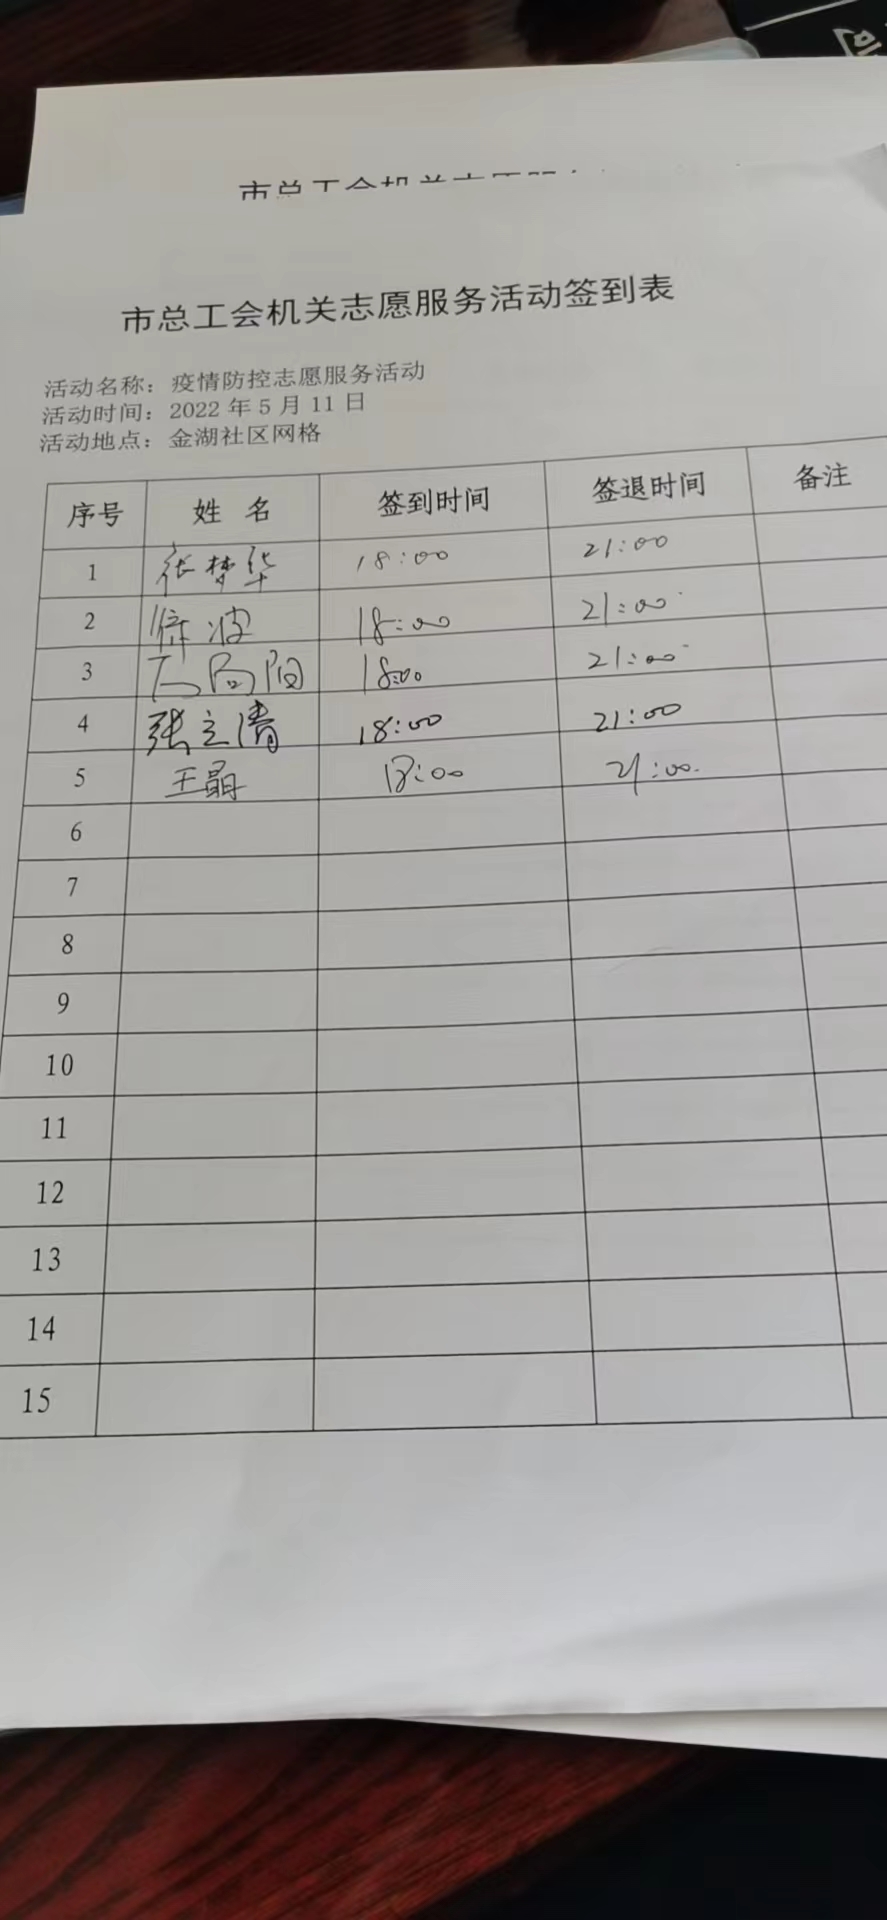 市总工会机关志愿服务活动签到表
活动名称：疫情防控志愿服务活动
活动时间：2022 年 5 月 11 日
活动地点：金湖社区网格
序号 姓 名 签到时间 签退时间 备注
1 张梦华 18:00 21:00
2 徐波 18:00 21:00
3 18:00 21:00
4 张立清 18:00 21:00
5 王晶 18:00 21:00
6
7
8
9
10
11
12
13
14
15